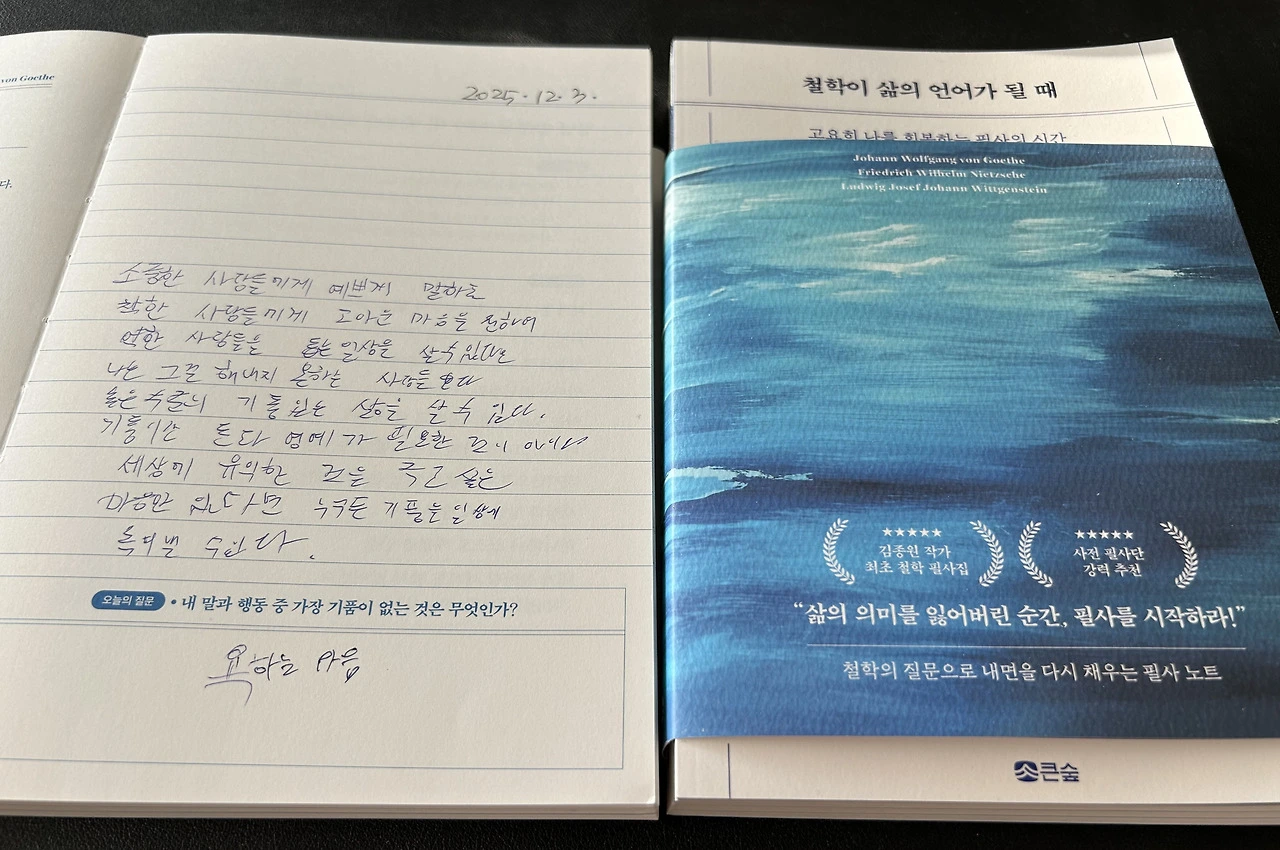 von Goethe
다.
2025.12.3.
소중한 사람들에게 예쁘게 말하고
착한 사람들에게 고마운 마음을 전하며
약한 사람들을 돕는 일상을 살 수 있다면
나는 그걸 해내지 못하는 사람들보다
높은 수준의 기품있는 삶을 살 수 있다.
기품이란 돈과 명예가 필요한 것이 아니라
세상에 유익한 것을 주고 싶은
마음만 있다면 누구든 기품을 일상에
수 있다.
오늘의 질문 • 내 말과 행동 중 가장 기품이 없는 것은 무엇인가?
욕하는 마음
철학이 삶의 언어가 될 때
고요히 나를 회복하는 필사의 시간
Johann Wolfgang von Goethe
Friedrich Wilhelm Nietzsche
Ludwig Josef Johann Wittgenstein
김종원 작가
최초 철학 필사집
사전 필사단
강력 추천
“삶의 의미를 잃어버린 순간, 필사를 시작하라!”
철학의 질문으로 내면을 다시 채우는 필사 노트
큰숲